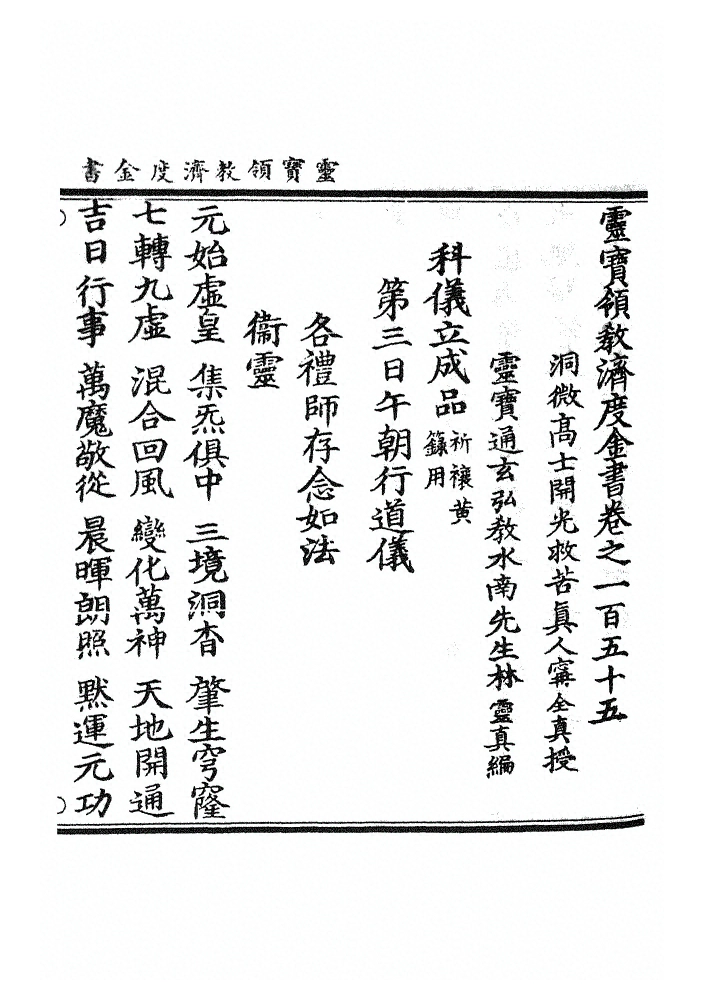 靈寶領教濟度金書
靈寶領教濟度金書卷之一百五十五
洞微高士開光救苦眞人甯全真授
靈寶通玄弘教水南先生林靈真編
科儀立成品祈禳黄籙用
第三日午朝行道儀
各禮師存念如法
衞靈
元始虛皇 集炁俱中 三境洞杳 肇生穹窿
七轉九虛 混合回風 變化萬神 天地開通
吉日行事 萬魔敬從 晨暉朗照 默運元功